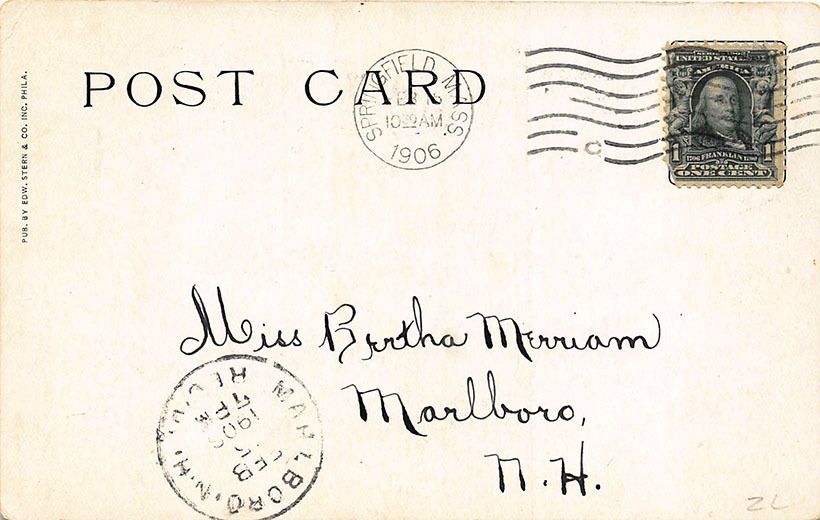 POST CARD
PUB. BY EDW. STERN & CO. INC. PHILA.
SPRINGFIELD, MASS.
10 AM
1906
C
UNITED STATES
AMERICA
1 1
FRANKLIN
POSTAGE
ONE CENT
Miss Bertha Merriam
Marlboro,
N.H.
MARLBORO, N.H.
REC'D.
FEB